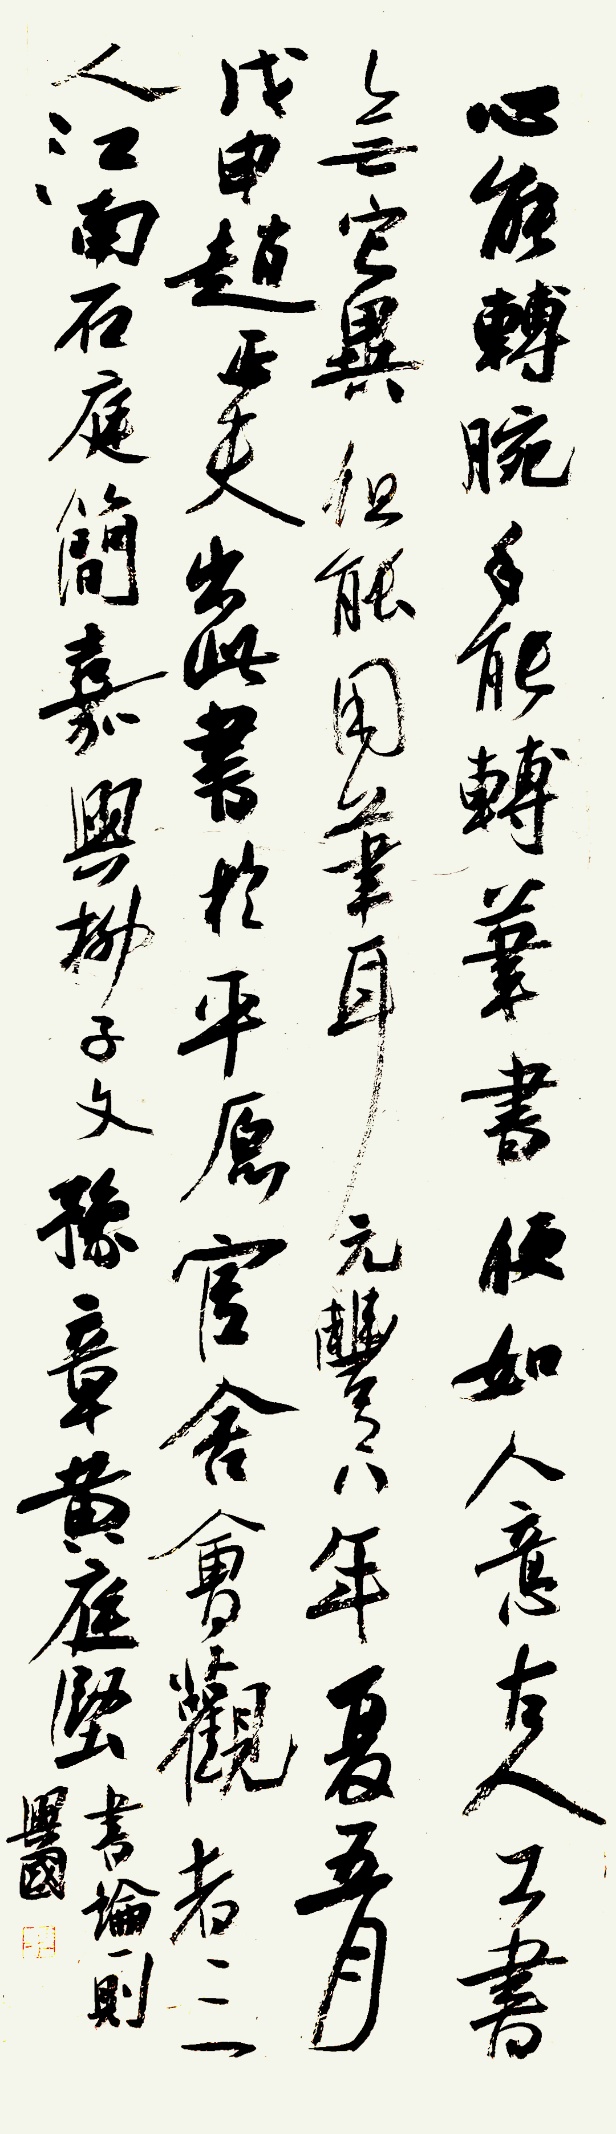 心能轉腕手能轉筆書便如人意古人工書
無它異但能用筆耳元豐八年夏五月
戊申趙正夫出此書於平原官舍會觀者三
人江南石庭簡嘉興柳子文豫章黃庭堅
書論一則
興國